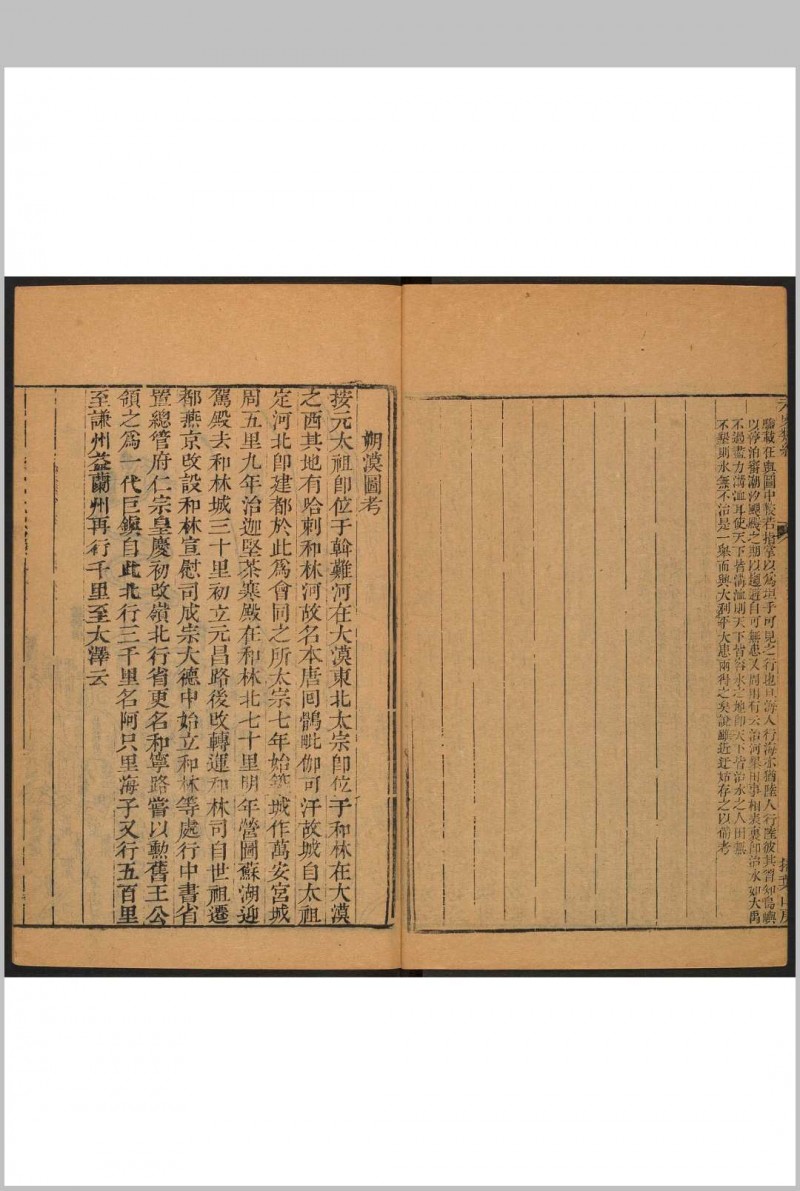 驗載在輿圖中較若指掌以為坦乎可見之行也且海人行海亦猶陸人行陸彼其習知島嶼
以停泊審潮汐颶颱之期以趨避自可無患又周用有云治河墾田事相表裏即治水如大禹
不過盡力溝洫耳使天下皆溝洫則天下皆容水之地即天下皆治水之人田無
不墾則水無不治是一舉而興大利平大患兩得之矣說雖近迂姑存之以備考
掃葉山房
朔漠圖考
按元太祖卽位于斡難河在大漠東北太宗卽位于和林在大漠
之西其地有哈剌和林河故名本唐囘鶻毗伽可汗故城自太祖
定河北卽建都於此爲會同之所太宗七年始築城作萬安宮城
周五里九年治迦堅茶寒殿在和林北七十里明年營圖蘇湖迎
駕殿去和林城三十里初立元昌路後改轉運和林司自世祖遷
都燕京改設和林宣慰司成宗大德中始立和林等處行中書省
置總管府仁宗皇慶初改嶺北行省更名和寧路嘗以勳舊王公
領之爲一代巨鎭自此北行三千里名阿只里海子又行五百里
至謙州益蘭州再行千里至大澤云